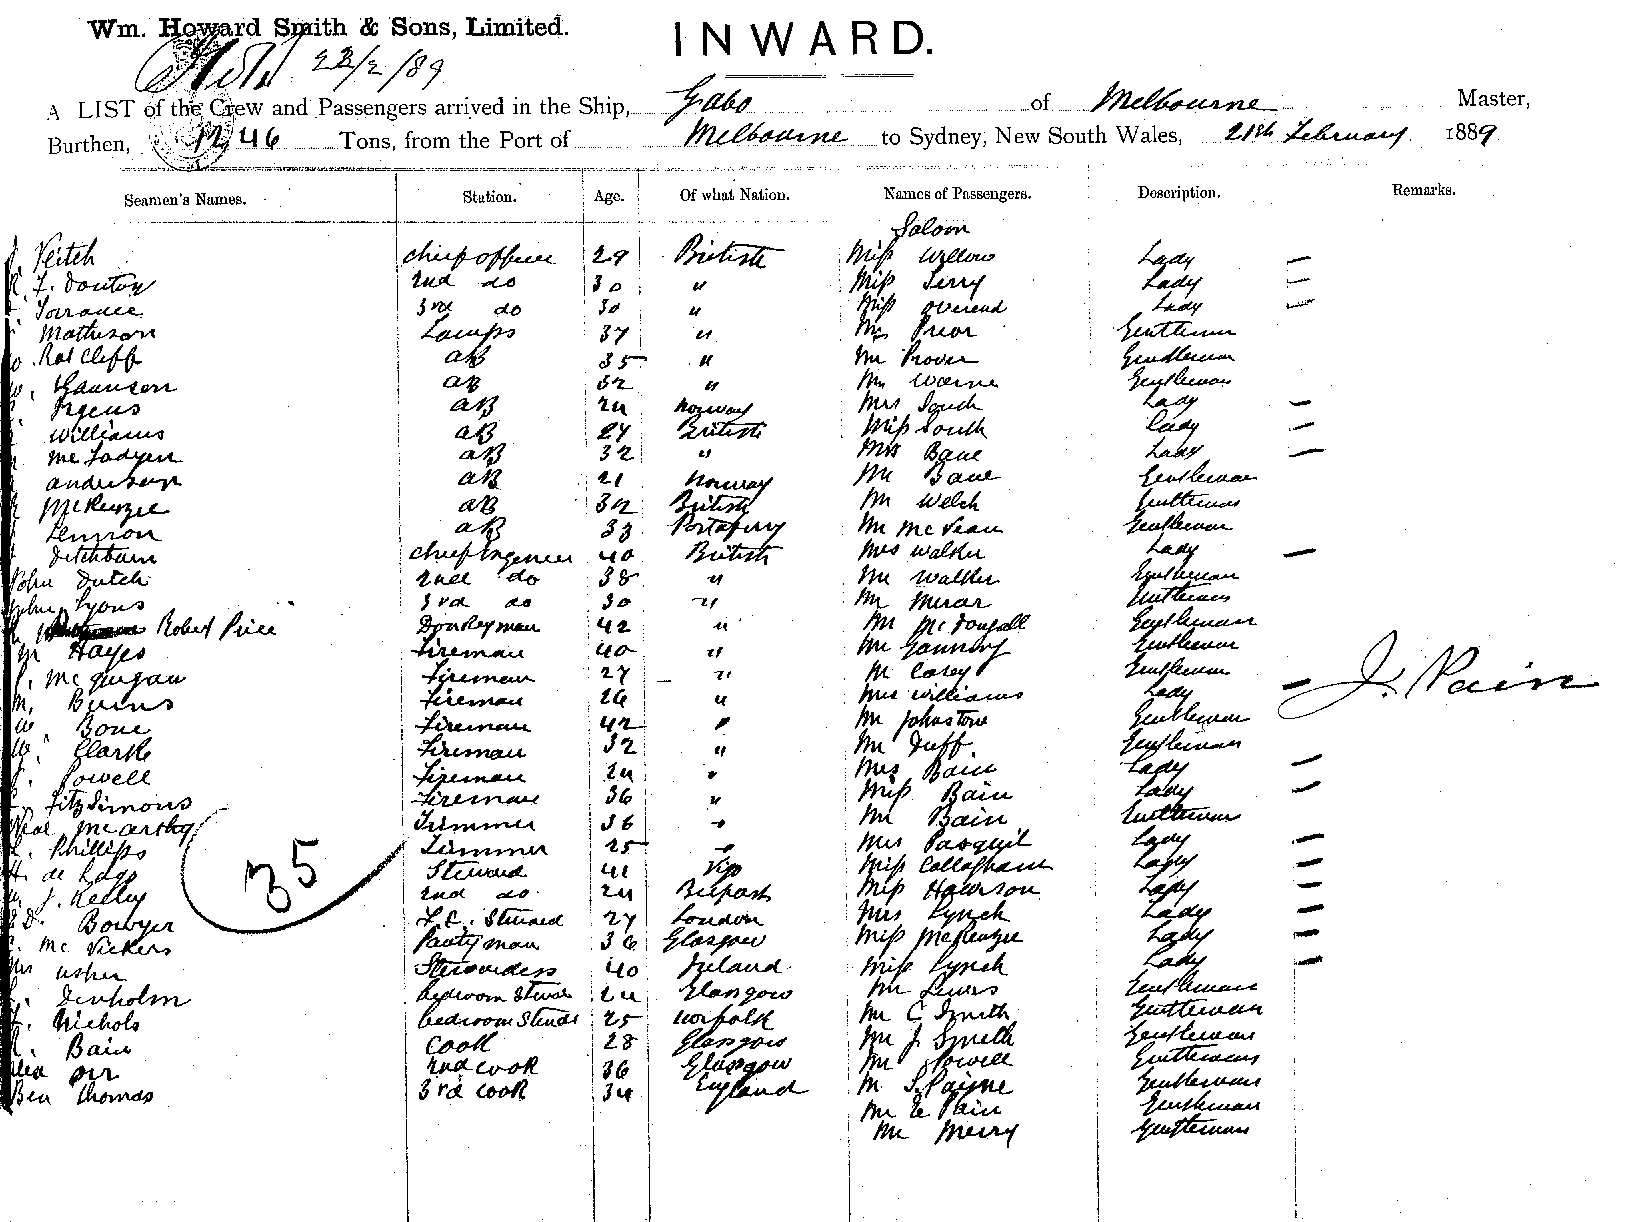 Wm. Howard Smith & Sons, Limited.
INWARD.
22/2/89
A LIST of the Crew and Passengers arrived in the Ship, Gabo of Melbourne Master,
Burthen, 1246 Tons, from the Port of Melbourne to Sydney, New South Wales, 21st February 1889
Seamen's Names. Station. Age. Of what Nation. Names of Passengers. Description. Remarks.
Saloon
Veitch chief officer 29 British Miss Willow Lady —
2nd do 30 " Miss Terry Lady —
Torrance 3rd do 30 " Miss Overend Lady —
Matheson Lamps 37 " Prior Gentleman
Ratcliff AB 35 " Mr Gentleman
AB 32 " Warne Gentleman
AB 24 Norway Mrs South Lady —
Williams AB 27 British Miss South Lady —
Mc Fadyen AB 32 " Mrs Bane Lady —
Anderson AB 21 Norway Mr Bane Gentleman
McKenzie AB 32 British Mr Welch Gentleman
Lennon AB 33 Mr McVean Gentleman
Ditchburn chief Engineer 40 British Mrs Walker Lady —
John Dutch 2nd do 38 " Mr Walker Gentleman
John Lyons 3rd do 30 " Mr Gentleman
Robert Price Donkeyman 42 " Mr McDougall Gentleman
Hayes Fireman 40 " Mr Gentleman
McGuigan Fireman 27 " Mr Carey Gentleman
M. Burns Fireman 26 " Mrs Williams Lady — J. Pain
W. Bone Fireman 42 " Mr Johnstone Gentleman
W. Clarke Fireman 32 " Mr Duff Gentleman
Powell Fireman 24 " Mrs Bain Lady —
Fitzsimons Fireman 36 " Miss Bain Lady —
McCarthy Trimmer 36 " Mr Bain Gentleman
Phillips Trimmer 25 " Mrs Pasquil Lady —
35
H. de Steward 41 Miss Callaghan Lady —
J. Kelly 2nd do 24 Belfast Miss Howson Lady —
Bowyer F.C. Steward 27 London Mrs Lynch Lady —
Mc Vickers Pantryman 36 Glasgow Miss McKenzie Lady —
Mrs Usher Stewardess 40 Ireland Miss Lynch Lady —
Denholm bedroom 24 Glasgow Mr Lewis Gentleman
Nichols bedroom 25 Norfolk Mr C Smith Gentleman
Bain Cook 28 Glasgow Mr J Smith Gentleman
Orr 2nd cook 36 Glasgow Mr Powell Gentleman
Ben Thomas 3rd cook 34 England Mr S. Payne Gentleman
Mr E Pain Gentleman
Mr Merry Gentleman